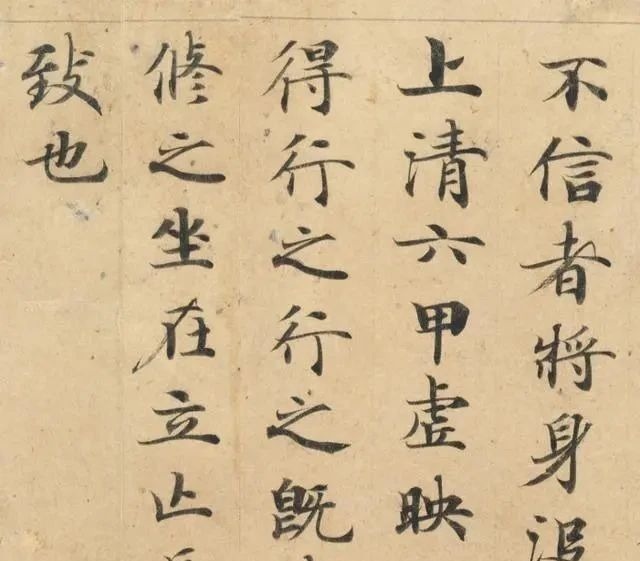 不信者將身沒
上清六甲虛映
得行之行之既
修之坐在立亡
致也